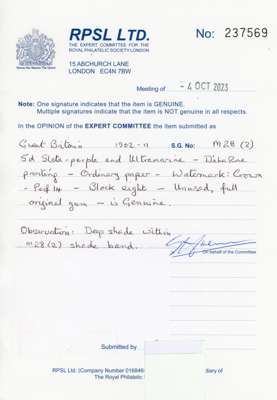 RPSL LTD.
THE EXPERT COMMITTEE FOR THE
ROYAL PHILATELIC SOCIETY LONDON
No: 237569
15 ABCHURCH LANE
LONDON EC4N 7BW
Meeting of - 4 OCT 2023
Note: One signature indicates that the item is GENUINE.
Multiple signatures indicate that the item is NOT genuine in all respects.
In the OPINION of the EXPERT COMMITTEE the item submitted as
Great Britain 1902-11 S.G. No: M28 (2)
5d Slate-purple and Ultramarine - De La Rue
printing - Ordinary paper - Watermark: Crown
- Perf 14 - Block eight - Unused, full
original gum - is Genuine.
Observation: Deep shade within
M28(2) shade band.
On behalf of the Committee
Submitted by
RPSL Ltd. (Company Number 016846 diary of
The Royal Philatelic